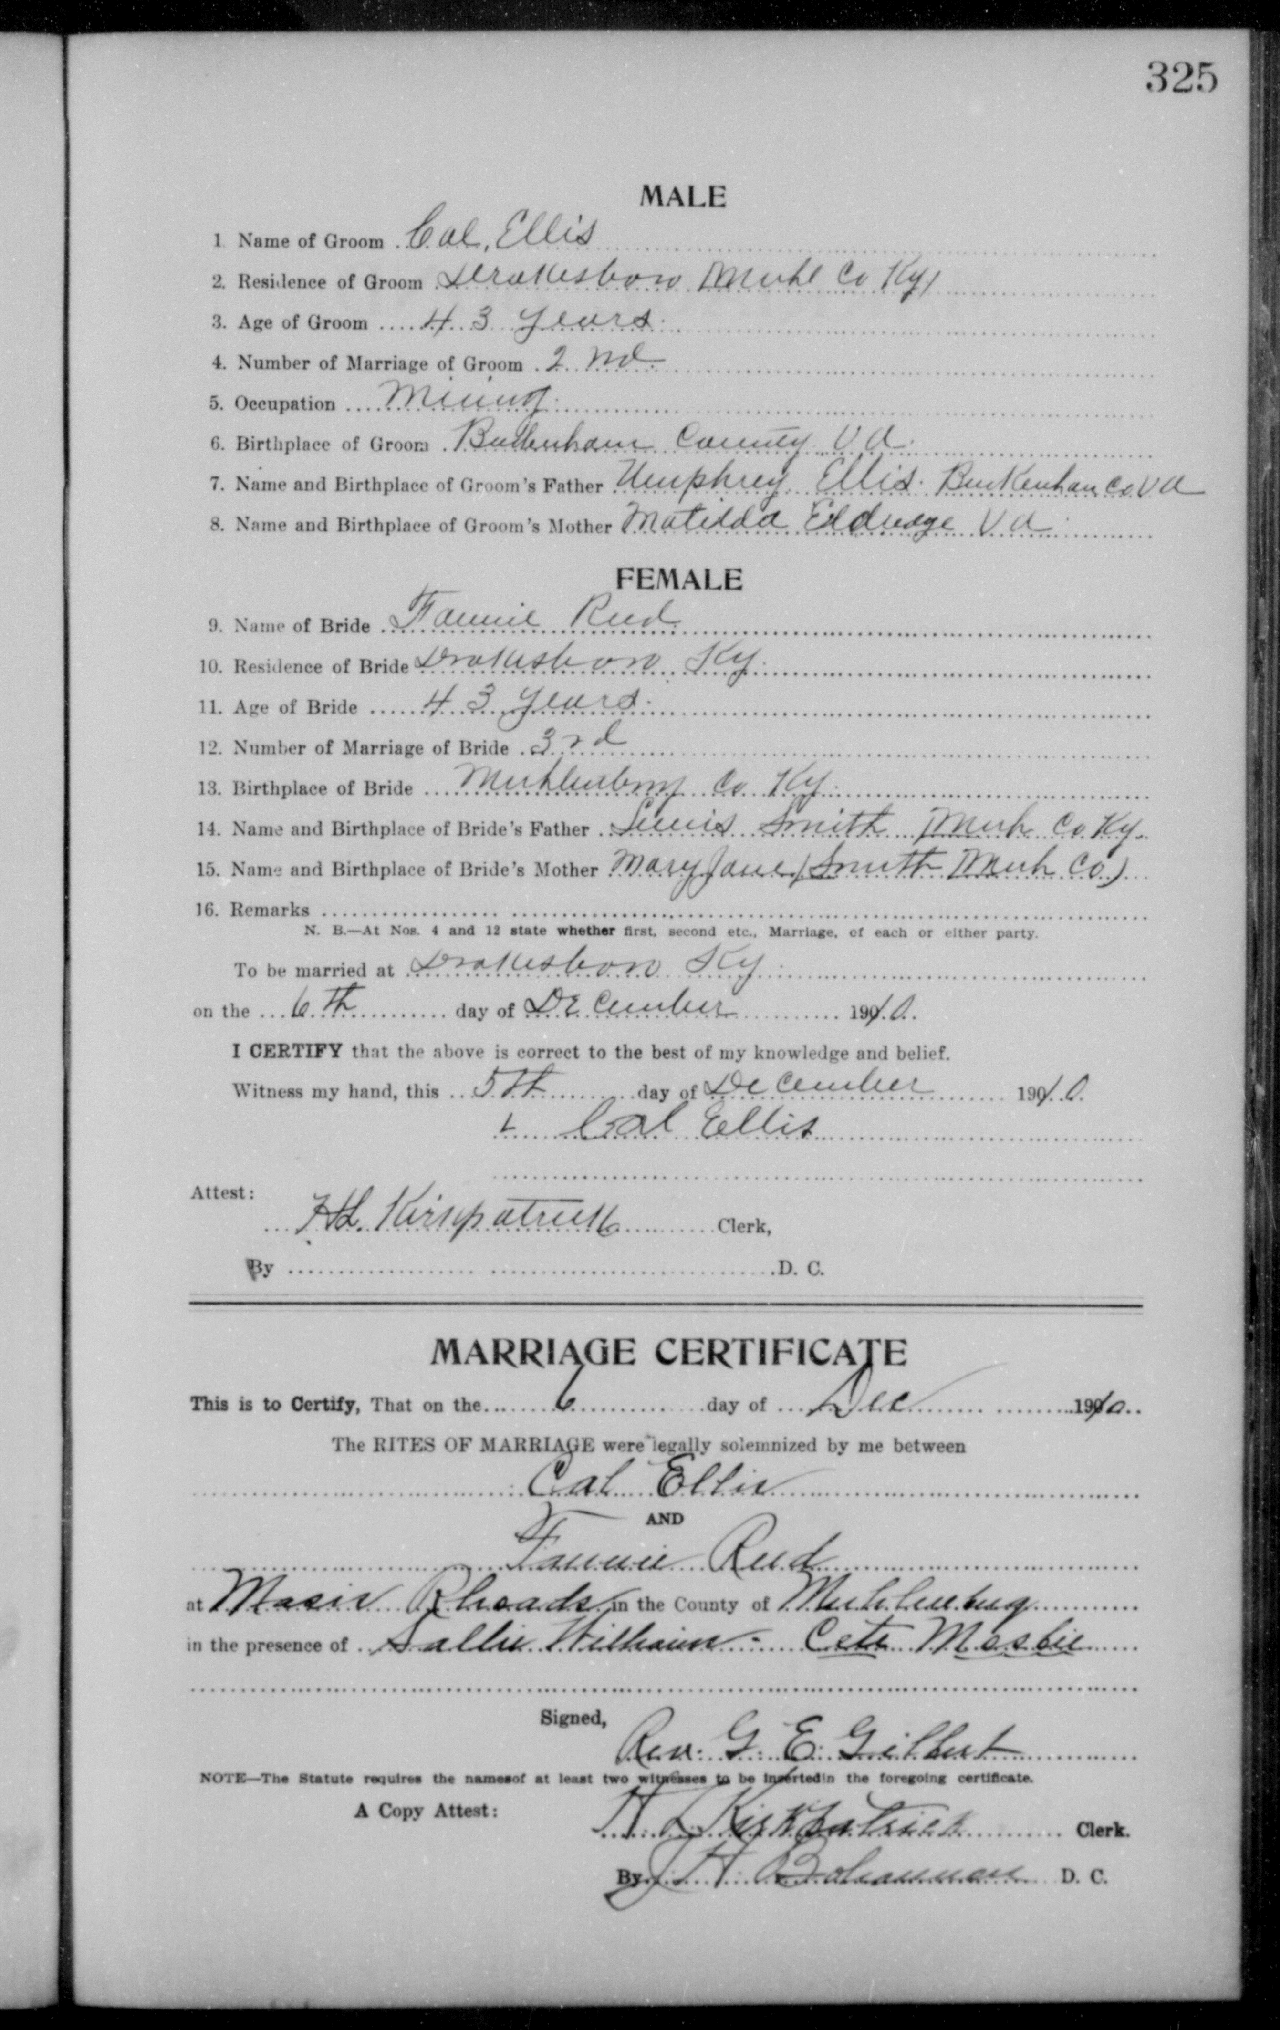 325
MALE
1 Name of Groom Cal, Ellis
2. Residence of Groom Drakesboro Muhl Co Ky
3. Age of Groom 43 years.
4. Number of Marriage of Groom 2nd.
5. Occupation Mining.
6. Birthplace of Groom County Va.
7. Name and Birthplace of Groom's Father Umphrey Ellis. Co Va
8. Name and Birthplace of Groom's Mother Matilda Eldredge Va.
FEMALE
9. Name of Bride Fannie Reed.
10. Residence of Bride Drakesboro Ky.
11. Age of Bride 43 years.
12. Number of Marriage of Bride 3rd
13. Birthplace of Bride Muhlenberg Co Ky.
14. Name and Birthplace of Bride's Father Lewis Smith Muh Co Ky.
15. Name and Birthplace of Bride's Mother Mary Jane (Smith Muh Co)
16. Remarks
N. B.—At Nos. 4 and 12 state whether first, second etc., Marriage, of each or either party.
To be married at Drakesboro Ky.
on the 6th day of December 1910.
I CERTIFY that the above is correct to the best of my knowledge and belief.
Witness my hand, this 5th day of December 1910.
Cal Ellis
Attest:
H.L. Kirkpatrick Clerk,
By D. C.
MARRIAGE CERTIFICATE
This is to Certify, That on the 6 day of Dec 1910
The RITES OF MARRIAGE were legally solemnized by me between
Cal Ellis
AND
Fannie Reed
at Rhoads in the County of Muhlenberg
in the presence of Sallie -
Signed,
Rev. G. E. Gilbert
NOTE—The Statute requires the namesof at least two witnesses to be insertedin the foregoing certificate.
A Copy Attest:
H L Kirkpatrick Clerk.
By J H Bohannon D. C.